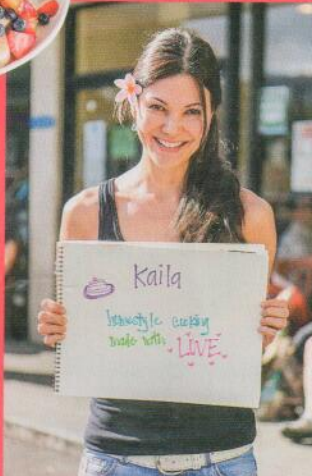 Kaila
homestyle cooking
made with LOVE